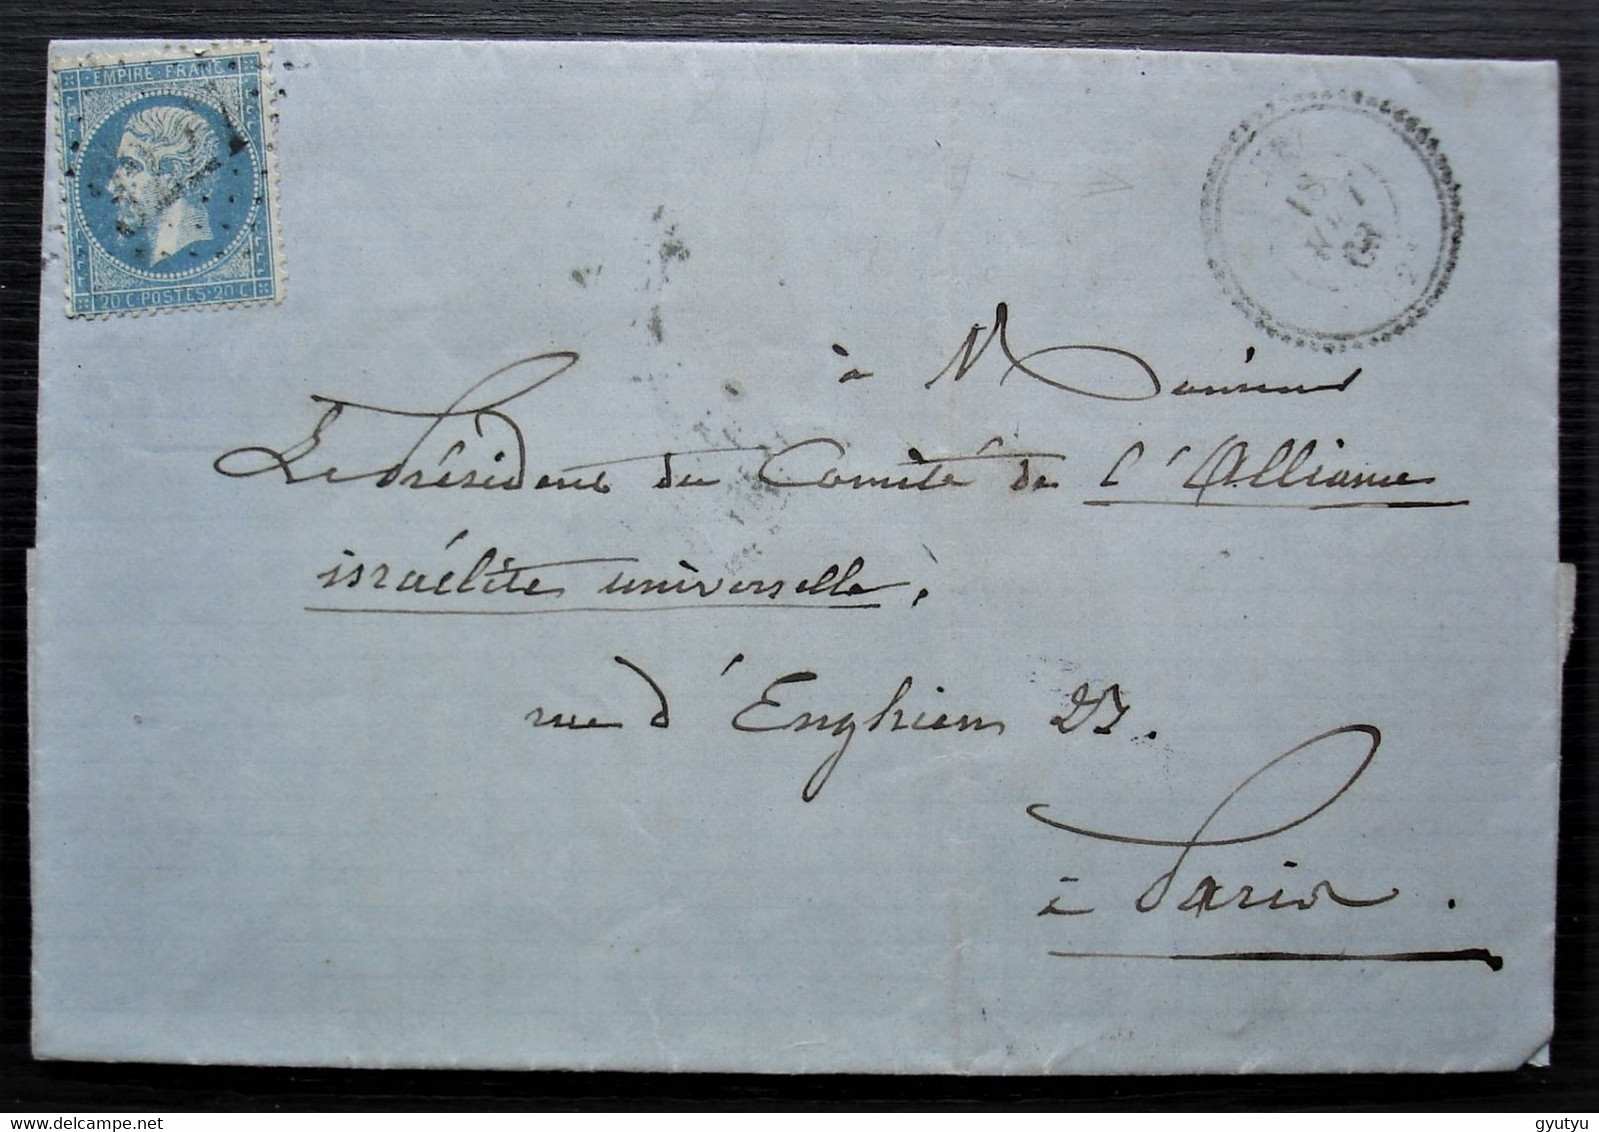 EMPIRE·FRANC
20 C·POSTES·20 C
18
63
à Monsieur
Le Président du Comité de l'Alliance
israélite universelle.
rue d'Enghien
à Paris.
gyutyu